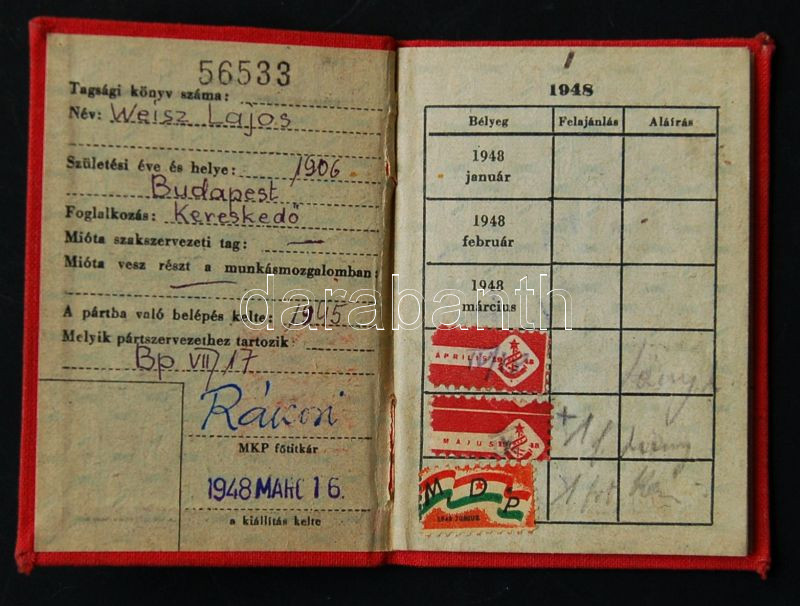 56533
Tagsági könyv száma:
Név: Weisz Lajos
Születési éve és helye: 1906
Budapest
Foglalkozás: Kereskedő
Mióta szakszervezeti tag: —
Mióta vesz részt a munkásmozgalomban:
—
A pártba való belépés kelte: 1945
Melyik pártszervezethez tartozik
Bp VII/17
Rákosi
MKP főtitkár
1948 MARC 16.
a kiállítás kelte
1948
Bélyeg Felajánlás Aláírás
1948
január
1948
február
1948
március
ÁPRILIS 1948
MÁJUS 1948
MDP
1948 JÚNIUS
darabanth